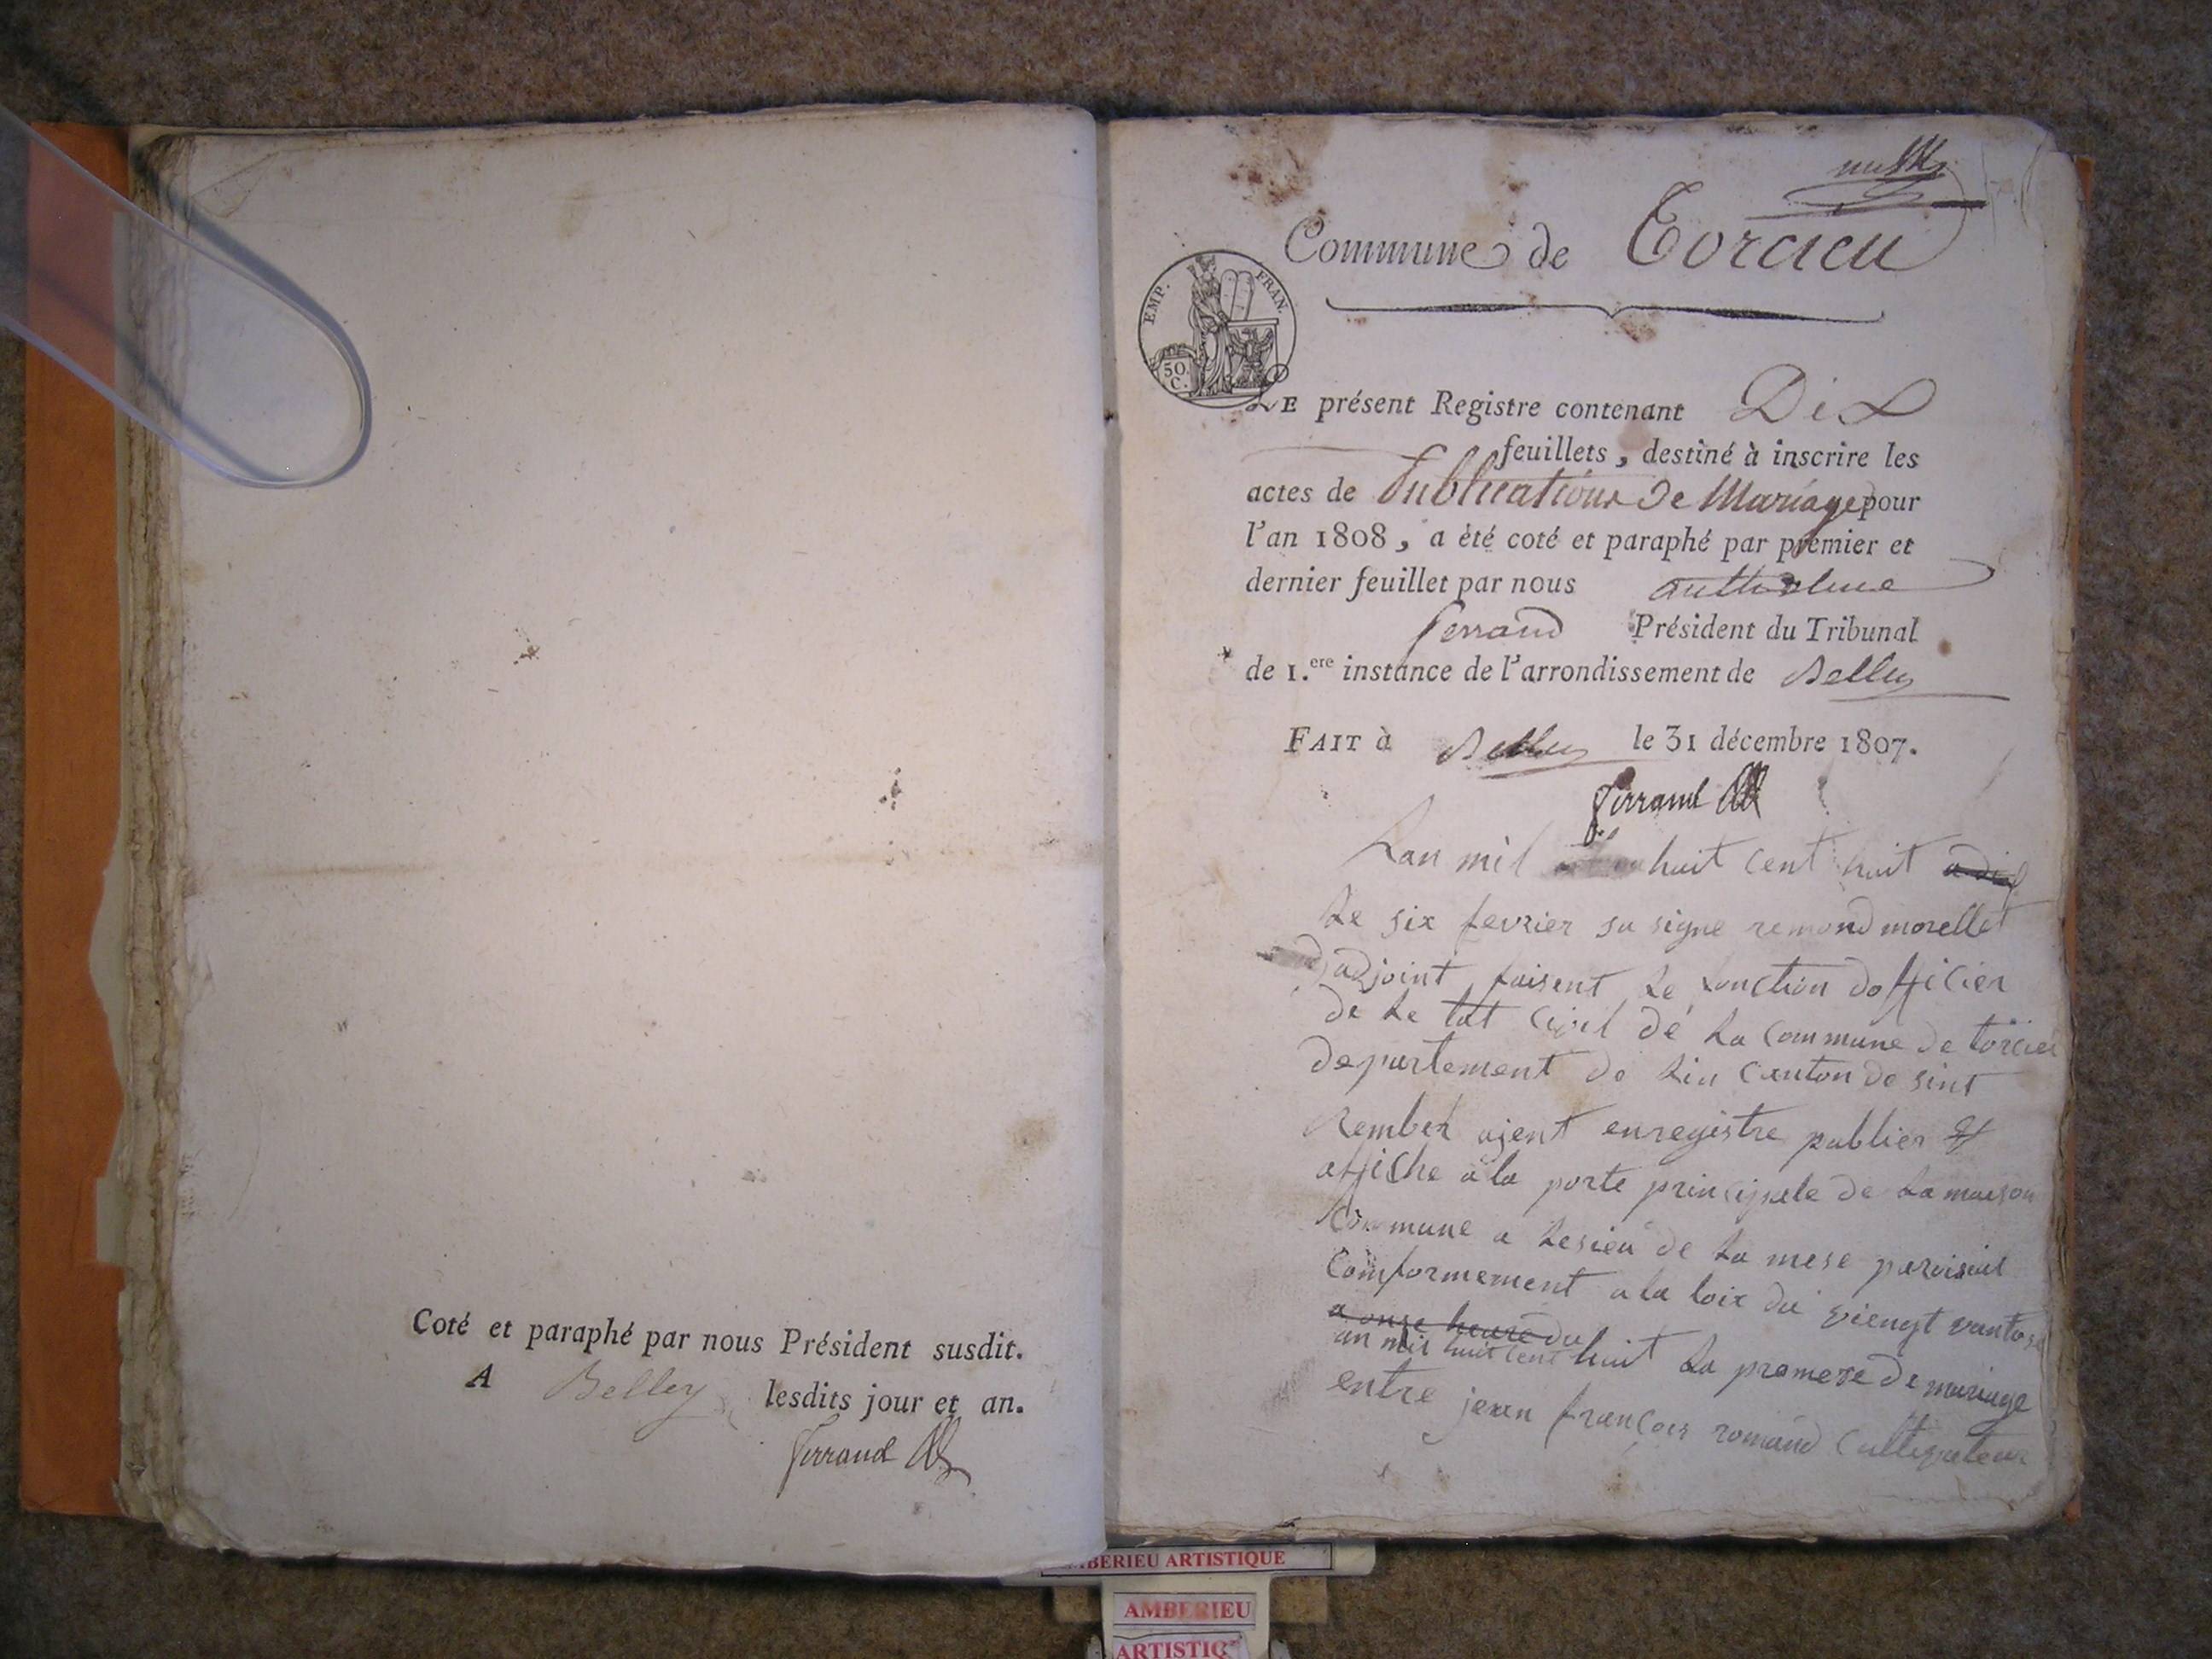 Coté et paraphé par nous Président susdit.
A Belley lesdits jour et an.
ferrand
Commune de Torcieu
EMP. FRAN.
50.
C.
LE présent Registre contenant Dix
feuillets, destiné à inscrire les
actes de Publications De Mariage pour
l'an 1808, a été coté et paraphé par premier et
dernier feuillet par nous anthelme
ferrand Président du Tribunal
de 1.ere instance de l'arrondissement de Belley
FAIT à Belley le 31 décembre 1807.
ferrand
Lan mil huit cent huit
Le six fevrier su signe remond morellet
adjoint faisent le fonction dofficier
de le tat civil de la commune de torcieu
departement de lin canton de sint
rember ajent enregistre publier et
affiche a la porte principale de la maison
commune a lesieu de la mese paroisial
Comformement a la loix du viengt vantose
a onze heure du
an mil huit cent huit la promese de mariage
entre jean françois romand cultivateur
AMBERIEU ARTISTIQUE
AMBERIEU
ARTISTIQ